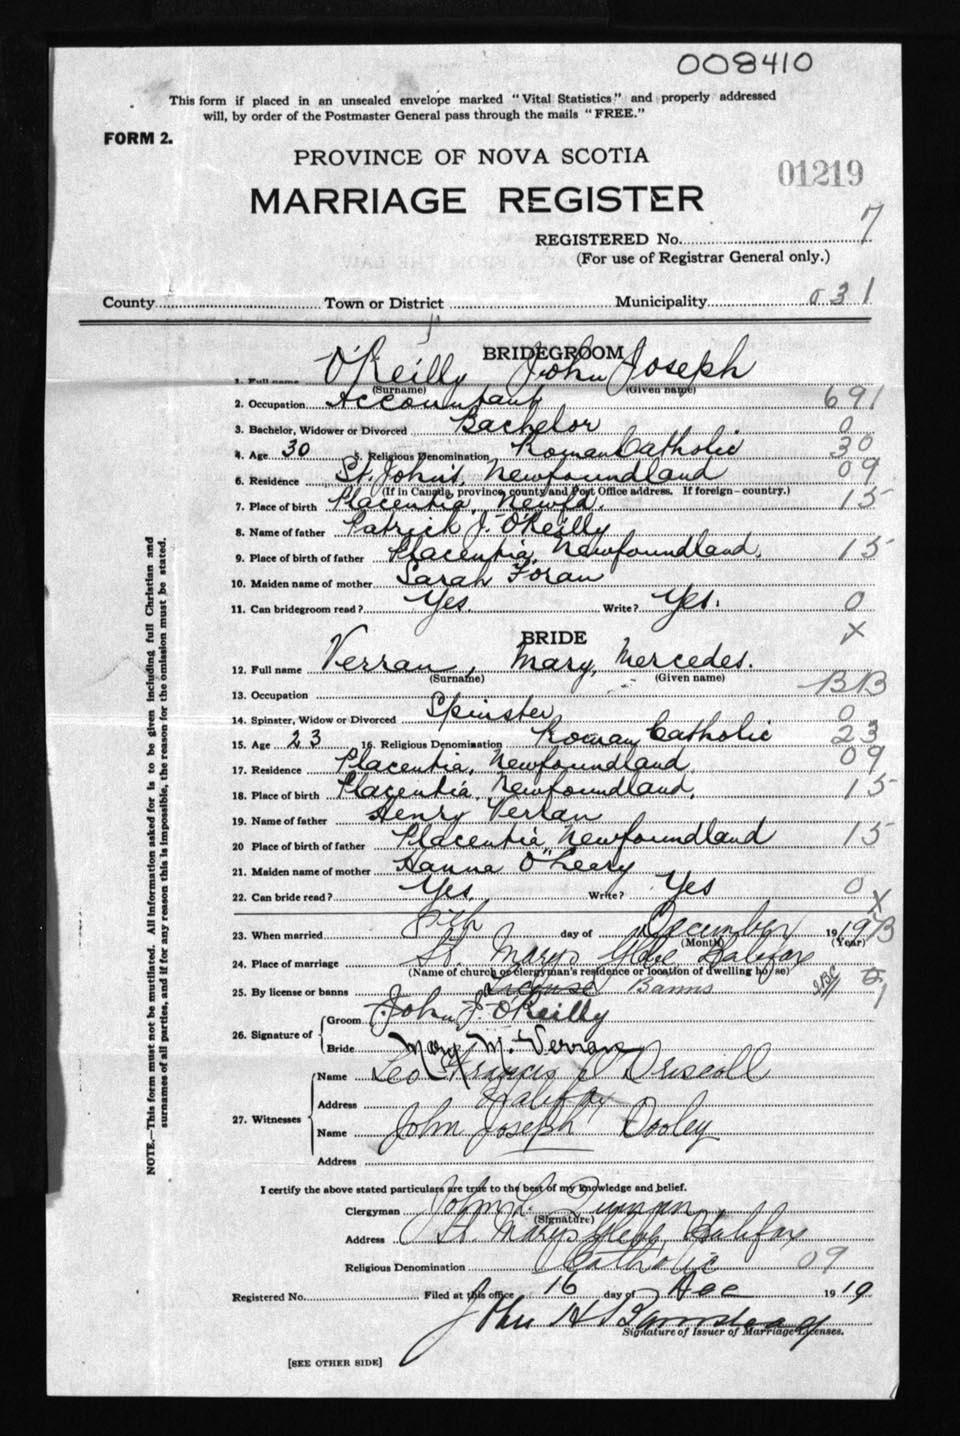 008410
This form if placed in an unsealed envelope marked "Vital Statistics" and properly addressed
will, by order of the Postmaster General pass through the mails "FREE."
FORM 2.
PROVINCE OF NOVA SCOTIA
01219
MARRIAGE REGISTER
REGISTERED No. 7
(For use of Registrar General only.)
County Town or District Municipality 031
BRIDEGROOM
1. Full name O'Reilly John Joseph
(Surname) (Given name)
2. Occupation Accountant 691
3. Bachelor, Widower or Divorced Bachelor 0
4. Age 30 5. Religious Denomination Roman Catholic 30
6. Residence St. John's, Newfoundland 09
(If in Canada, province, county and Post Office address. If foreign—country.)
7. Place of birth Placentia, Newfd. 15
8. Name of father Patrick J. O'Reilly
9. Place of birth of father Placentia, Newfoundland. 15
10. Maiden name of mother Sarah Foran
11. Can bridegroom read? Yes. Write? Yes. 0
X
BRIDE
12. Full name Verran, Mary, Mercedes.
(Surname) (Given name)
13. Occupation BB
14. Spinster, Widow or Divorced Spinster 0
15. Age 23 16. Religious Denomination Roman Catholic 23
17. Residence Placentia, Newfoundland. 09
18. Place of birth Placentia, Newfoundland. 15
19. Name of father Henry Verran
20 Place of birth of father Placentia, Newfoundland 15
21. Maiden name of mother Hanna O'Leary
22. Can bride read? Yes. Write? Yes 0
X
23. When married day of December 1919 B
(Month) (Year)
24. Place of marriage St. Mary's Glebe Halifax
(Name of church or clergyman's residence or location of dwelling house)
25. By license or banns License Banns 1
26. Signature of Groom John J. O'Reilly
Bride Mary M. Verran
27. Witnesses Name Leo Francis Driscoll
Address Halifax
Name John Joseph Dooley
Address
I certify the above stated particulars are true to the best of my knowledge and belief.
Clergyman John L.
(Signature)
Address St. Mary's Glebe, Halifax
Religious Denomination Catholic 09
Registered No. Filed at this office 16 day of Dec 1919
John H
Signature of Issuer of Marriage Licenses.
[SEE OTHER SIDE]
NOTE.—This form must not be mutilated. All information asked for is to be given including full Christian and
surnames of all parties, and if for any reason this is impossible, the reason for the omission must be stated.